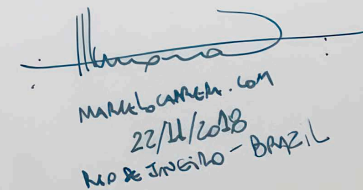 MARCELOCARRERA.COM
22/11/2018
RIO DE JANEIRO - BRAZIL